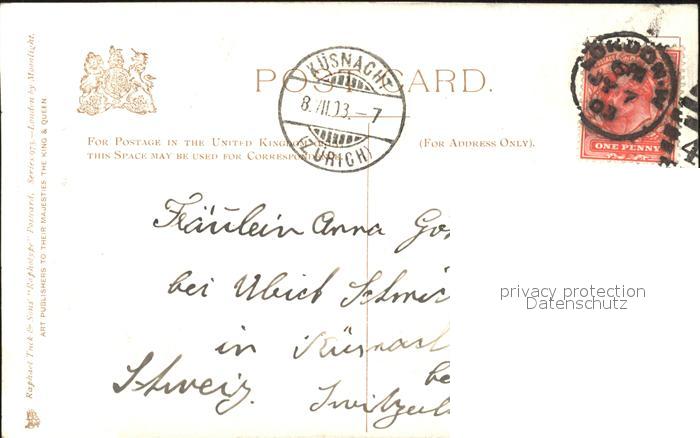 POST CARD.
FOR POSTAGE IN THE UNITED KINGDOM
THIS SPACE MAY BE USED FOR CORRESPON
(FOR ADDRESS ONLY).
KÜSNACHT
8.VII.03.-7
(ZÜRICH)
LONDON
JY 7
03
ONE PENNY
4
Raphael Tuck & Sons' "Raphotype" Postcard, Series 973.—London by Moonlight.
ART PUBLISHERS TO THEIR MAJESTIES THE KING & QUEEN
Fräulein Anna
bei Ulrich
in Küsnach
be
Schweiz. Switzerl
privacy protection
Datenschutz